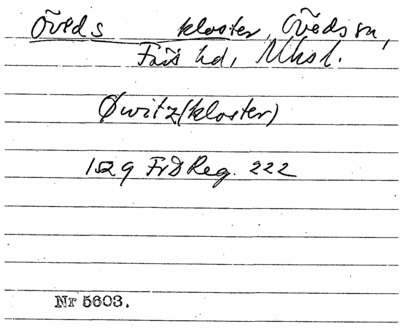 Öveds kloster, Öveds sn,
Färs hd, Mhsl.
Øwitz (kloster)
1529 FrDReg. 222
Nr 5603.